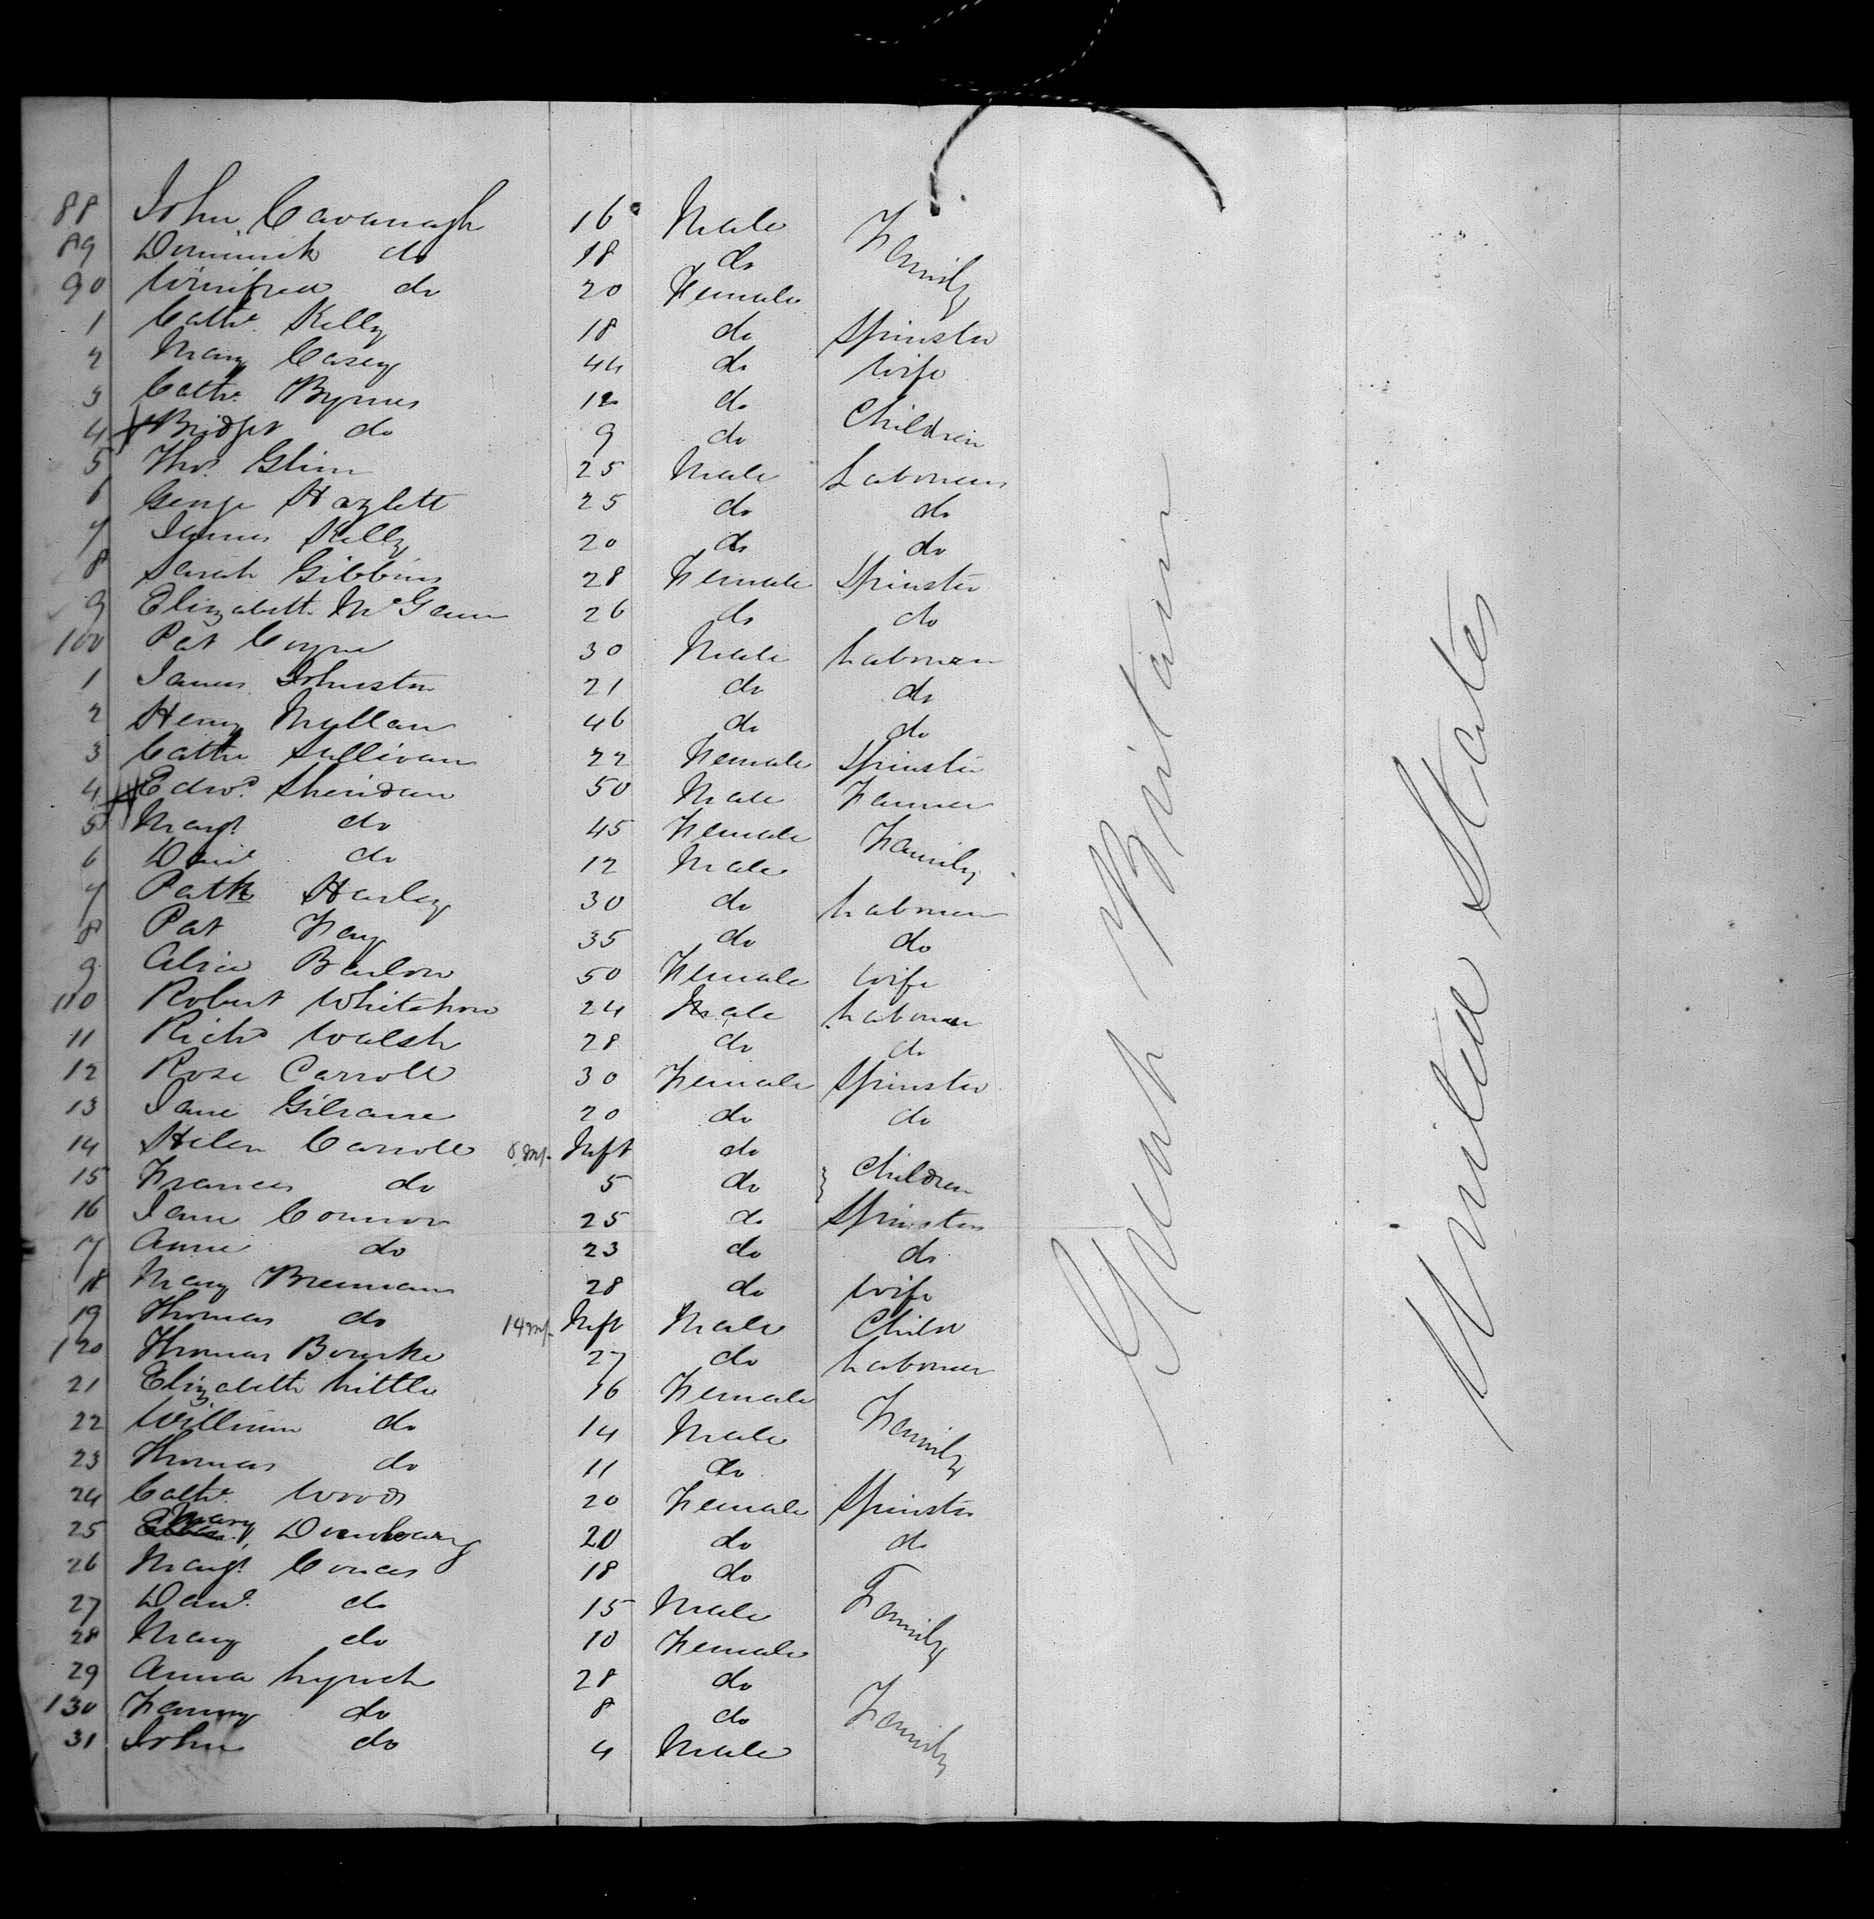 88 John Cavanagh 16 Male Family
89 Dominick do 18 do
90 Winifred do 20 Female
1 Cathe. Kelly 18 do Spinster
2 Mary Casey 44 do Wife
3 Cathe. Byrnes 12 do Children
4 Bridget do 9 do
5 Thos. Glinn 25 Male Labourer
6 George Hazlett 25 do do
7 James Kelly 20 do do
8 Sarah Gibbins 28 Female Spinster
9 Elizabeth McGann 26 do do
100 Pat Coyne 30 Male Labourer
1 James Johnston 21 do do
2 Henry Mullan 46 do do
3 Cathe Sullivan 22 Female Spinster
4 Edwd. Sheridan 50 Male Farmer
5 Margt. do 45 Female Family
6 Danl do 12 Male
7 Patk Harley 30 do Labourer
8 Pat Fay 35 do do
9 Alice 50 Female Wife
110 Robert 24 Male Labourer
11 Richd Walsh 28 do do
12 Rose Carroll 30 Female Spinster
13 Jane Gilrane 20 do do
14 Helen Carroll 8 ms. Inft do Children
15 Frances do 5 do
16 Jane Connor 25 do Spinster
17 Anne do 23 do do
18 Mary Brennan 28 do Wife
19 Thomas do 14 ms. Inft Male Child
120 Thomas Bourke 27 do Labourer
21 Elizabeth Little 16 Female Family
22 William do 14 Male
23 Thomas do 11 do
24 Cathe. Woods 20 Female Spinster
25 Mary 20 do do
26 Margt. 18 do Family
27 Danl. do 15 Male
28 Mary do 10 Female
29 Anna Lynch 28 do Family
130 Fanny do 8 do
31 John do 4 Male
Great Britain
United States